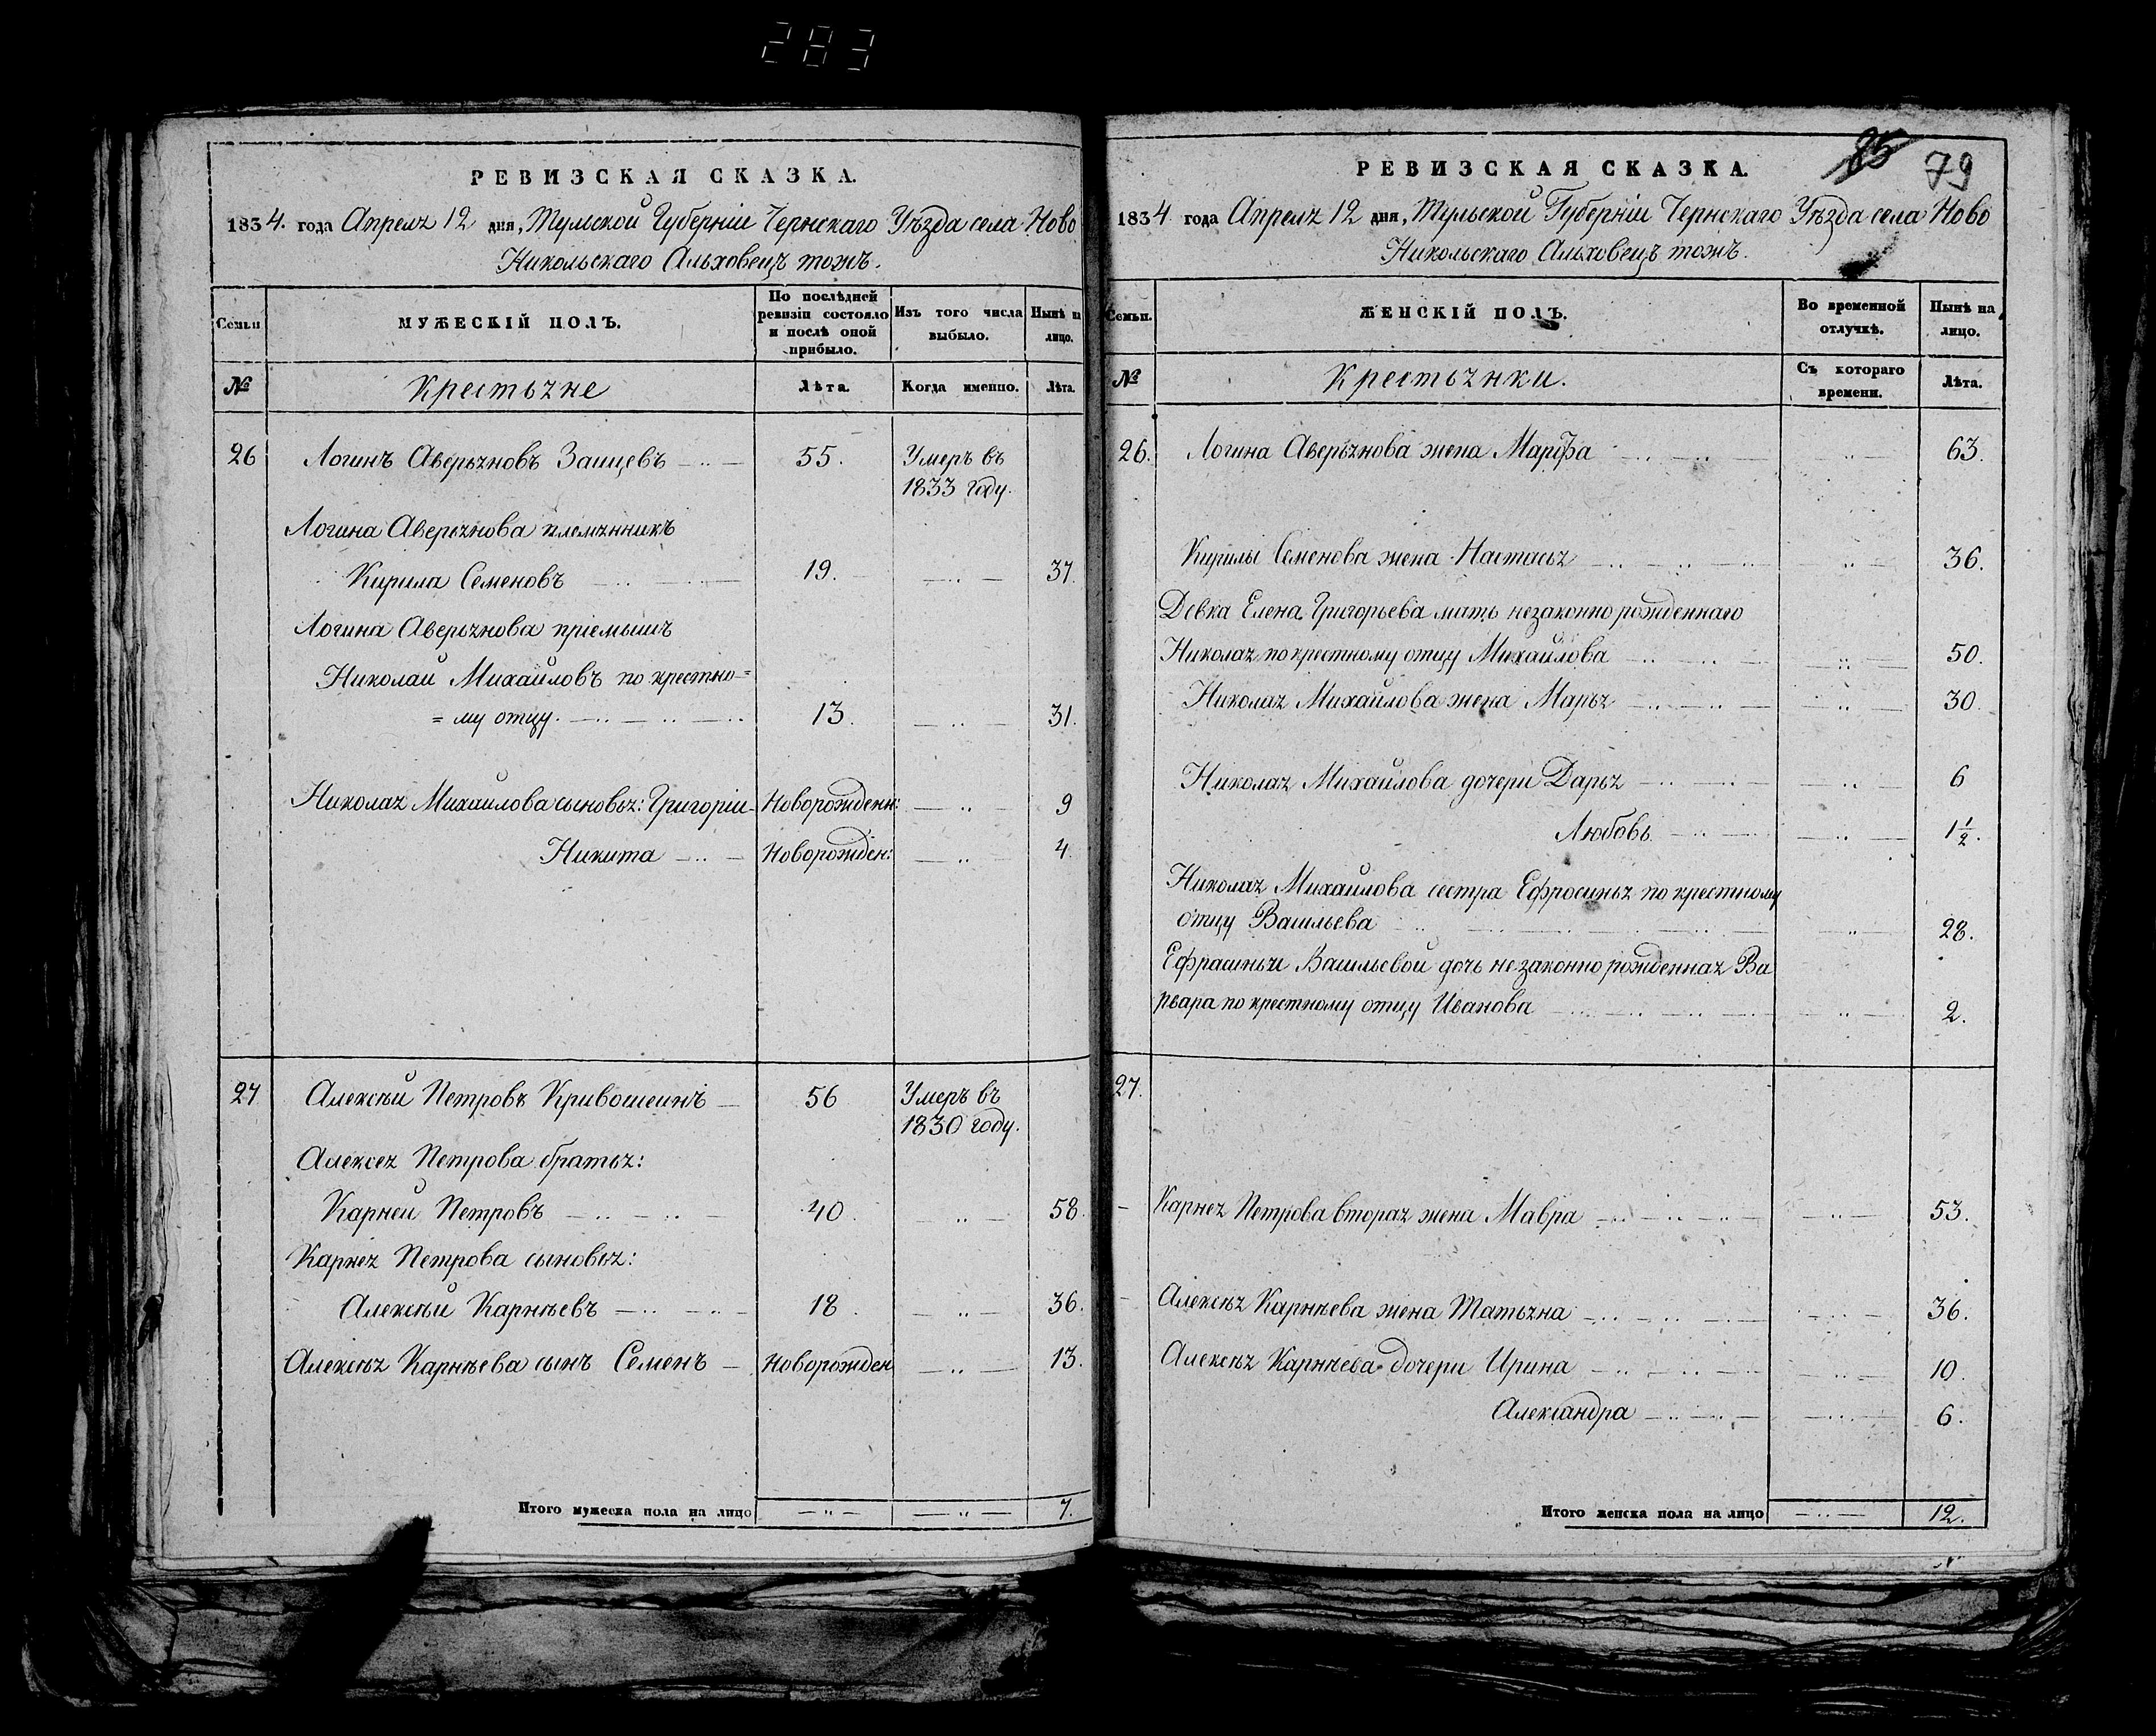 283
РЕВИЗСКАЯ СКАЗКА.
1834. года Апреля 12 дня, Тульской Губерніи Чернскаго Уѣзда села Ново
Никольскаго Альховецъ тожъ.
Семьи
МУЖЕСКІЙ ПОЛЪ.
По послѣдней ревизіи состояло и послѣ оной прибыло.
Изъ того числа выбыло.
Нынѣ на лицо.
№
Крестьяне
Лѣта.
Когда именно.
Лѣта.
26 Логинъ Аверьяновъ Заицевъ 55. Умеръ въ
1833 году.
Логина Аверьянова племянникъ
Кирила Семеновъ 19. 37.
Логина Аверьянова пріемышъ
Николаи Михаиловъ по крестно=
=му отцу. 13. 31.
Николая Михаилова сыновья: Григоріи Новорожденн: 9
Никита Новорожден: 4.
27 Алексѣи Петровъ Кривошеинъ 56 Умеръ въ
1830 году.
Алексея Петрова братья:
Карнеи Петровъ 40. 58.
Карнея Петрова сыновья:
Алексѣи Карнѣевъ 18. 36.
Алексѣя Карнѣева сынъ Семенъ Новорожден 13.
Итого мужеска пола на лицо 7.
85 79
РЕВИЗСКАЯ СКАЗКА.
1834 года Апреля 12 дня, Тульской Губерніи Чернскаго Уѣзда села Ново
Никольскаго Альховецъ тожъ.
Семьи.
ЖЕНСКІЙ ПОЛЪ.
Во временной отлучкѣ.
Нынѣ на лицо.
№
Крестьянки.
Съ котораго времени.
Лѣта.
26. Логина Аверьянова жена Марѳа 63.
Кирилы Семенова жена Настасья 36.
Девка Елена Григорьева мать незаконно рожденнаго
Николая по крестному отцу Михаилова 50.
Николая Михаилова жена Марья 30.
Николая Михаилова дочери Дарья 6
Любовь. 1½.
Николая Михаилова сестра Ефросинья по крестному
отцу Васильева 28.
Ефрасиньи Васильевои дочь незаконно рожденная Ва
рвара по крестному отцу Иванова 2.
27.
Карнея Петрова вторая жена Мавра 53.
Алексѣя Карнѣева жена Татьяна 36.
Алексѣя Карнѣева дочери Ирина 10.
Александра 6.
Итого женска пола на лицо 12.